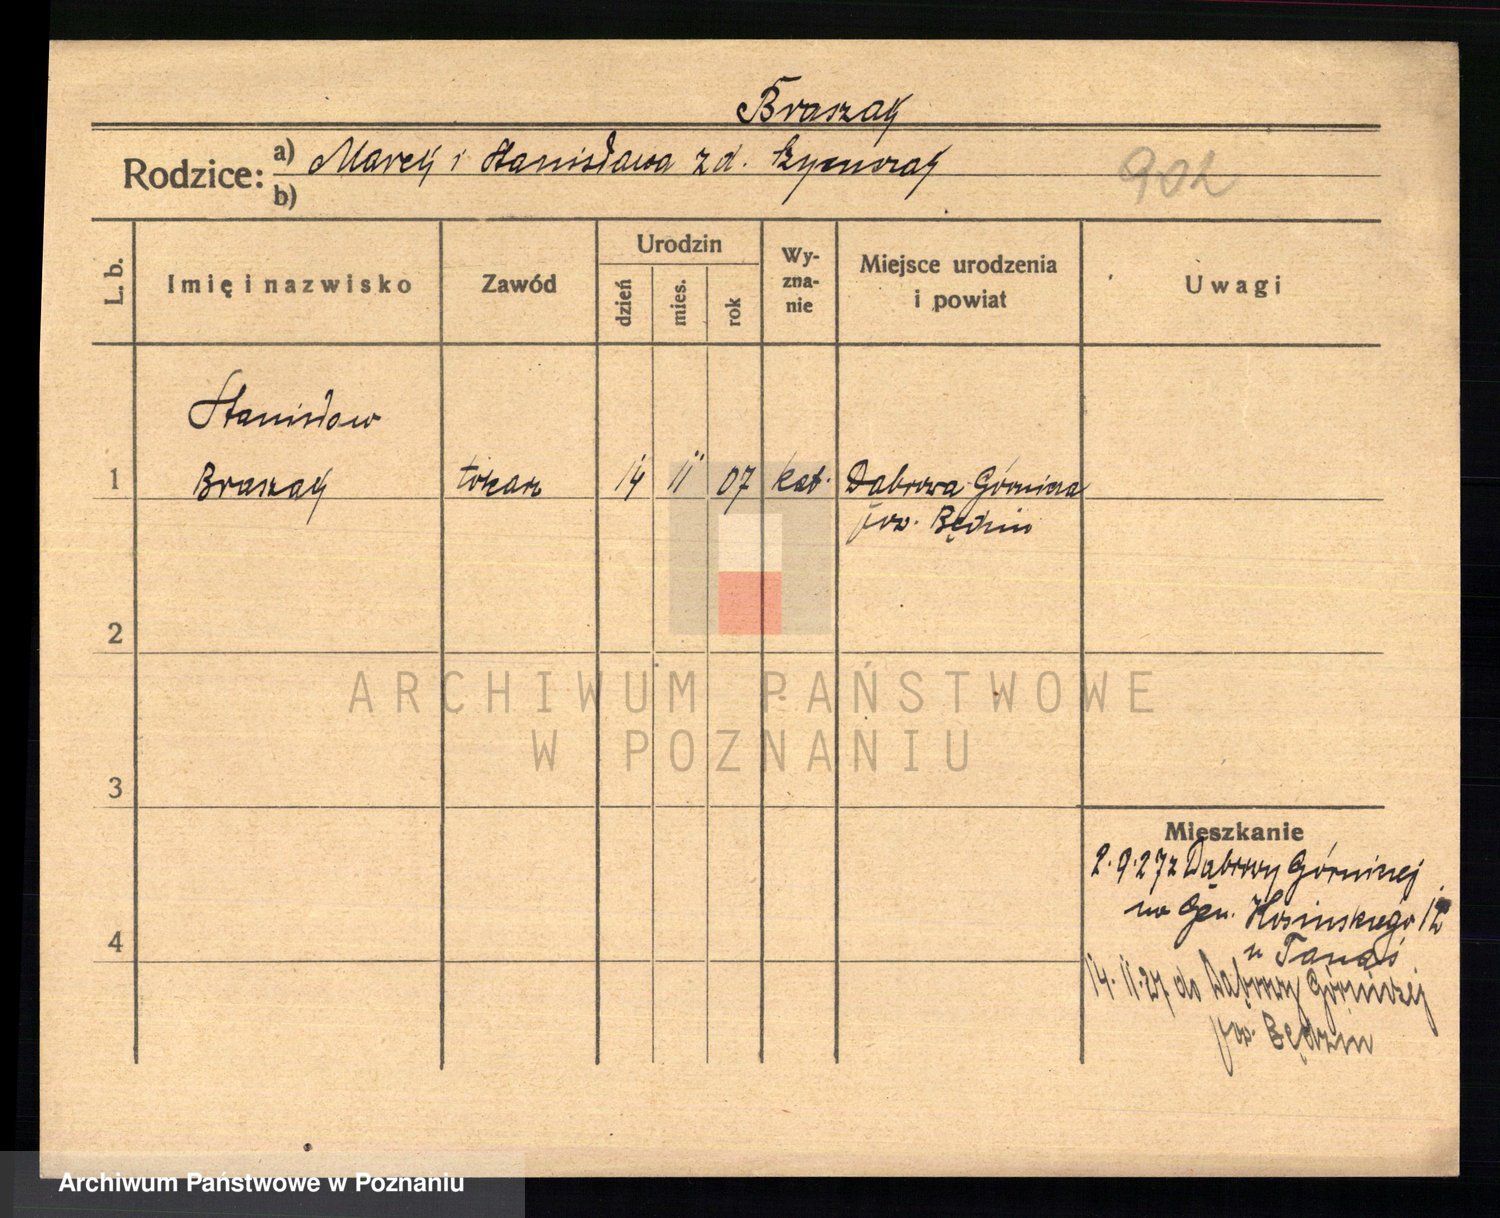 Braszak
Rodzice: a) Marek i Stanisława zd.
b)
902
L. b. Imię i nazwisko Zawód Urodzin dzień mies. rok Wy-zna-nie Miejsce urodzenia i powiat Uwagi
Stanisław
1 Braszak tokarz 14 11 07 kat. Dąbrowa Górnicza
pow. Będzin
2
ARCHIWUM PAŃSTWOWE
W POZNANIU
3
Mieszkanie
2.9.27 z Dąbrowy Górniczej
na Gen. Kosińskiego
u Tanaś
4
14.11.27 do Dąbrowy Górniczej
pow. Będzin
Archiwum Państwowe w Poznaniu